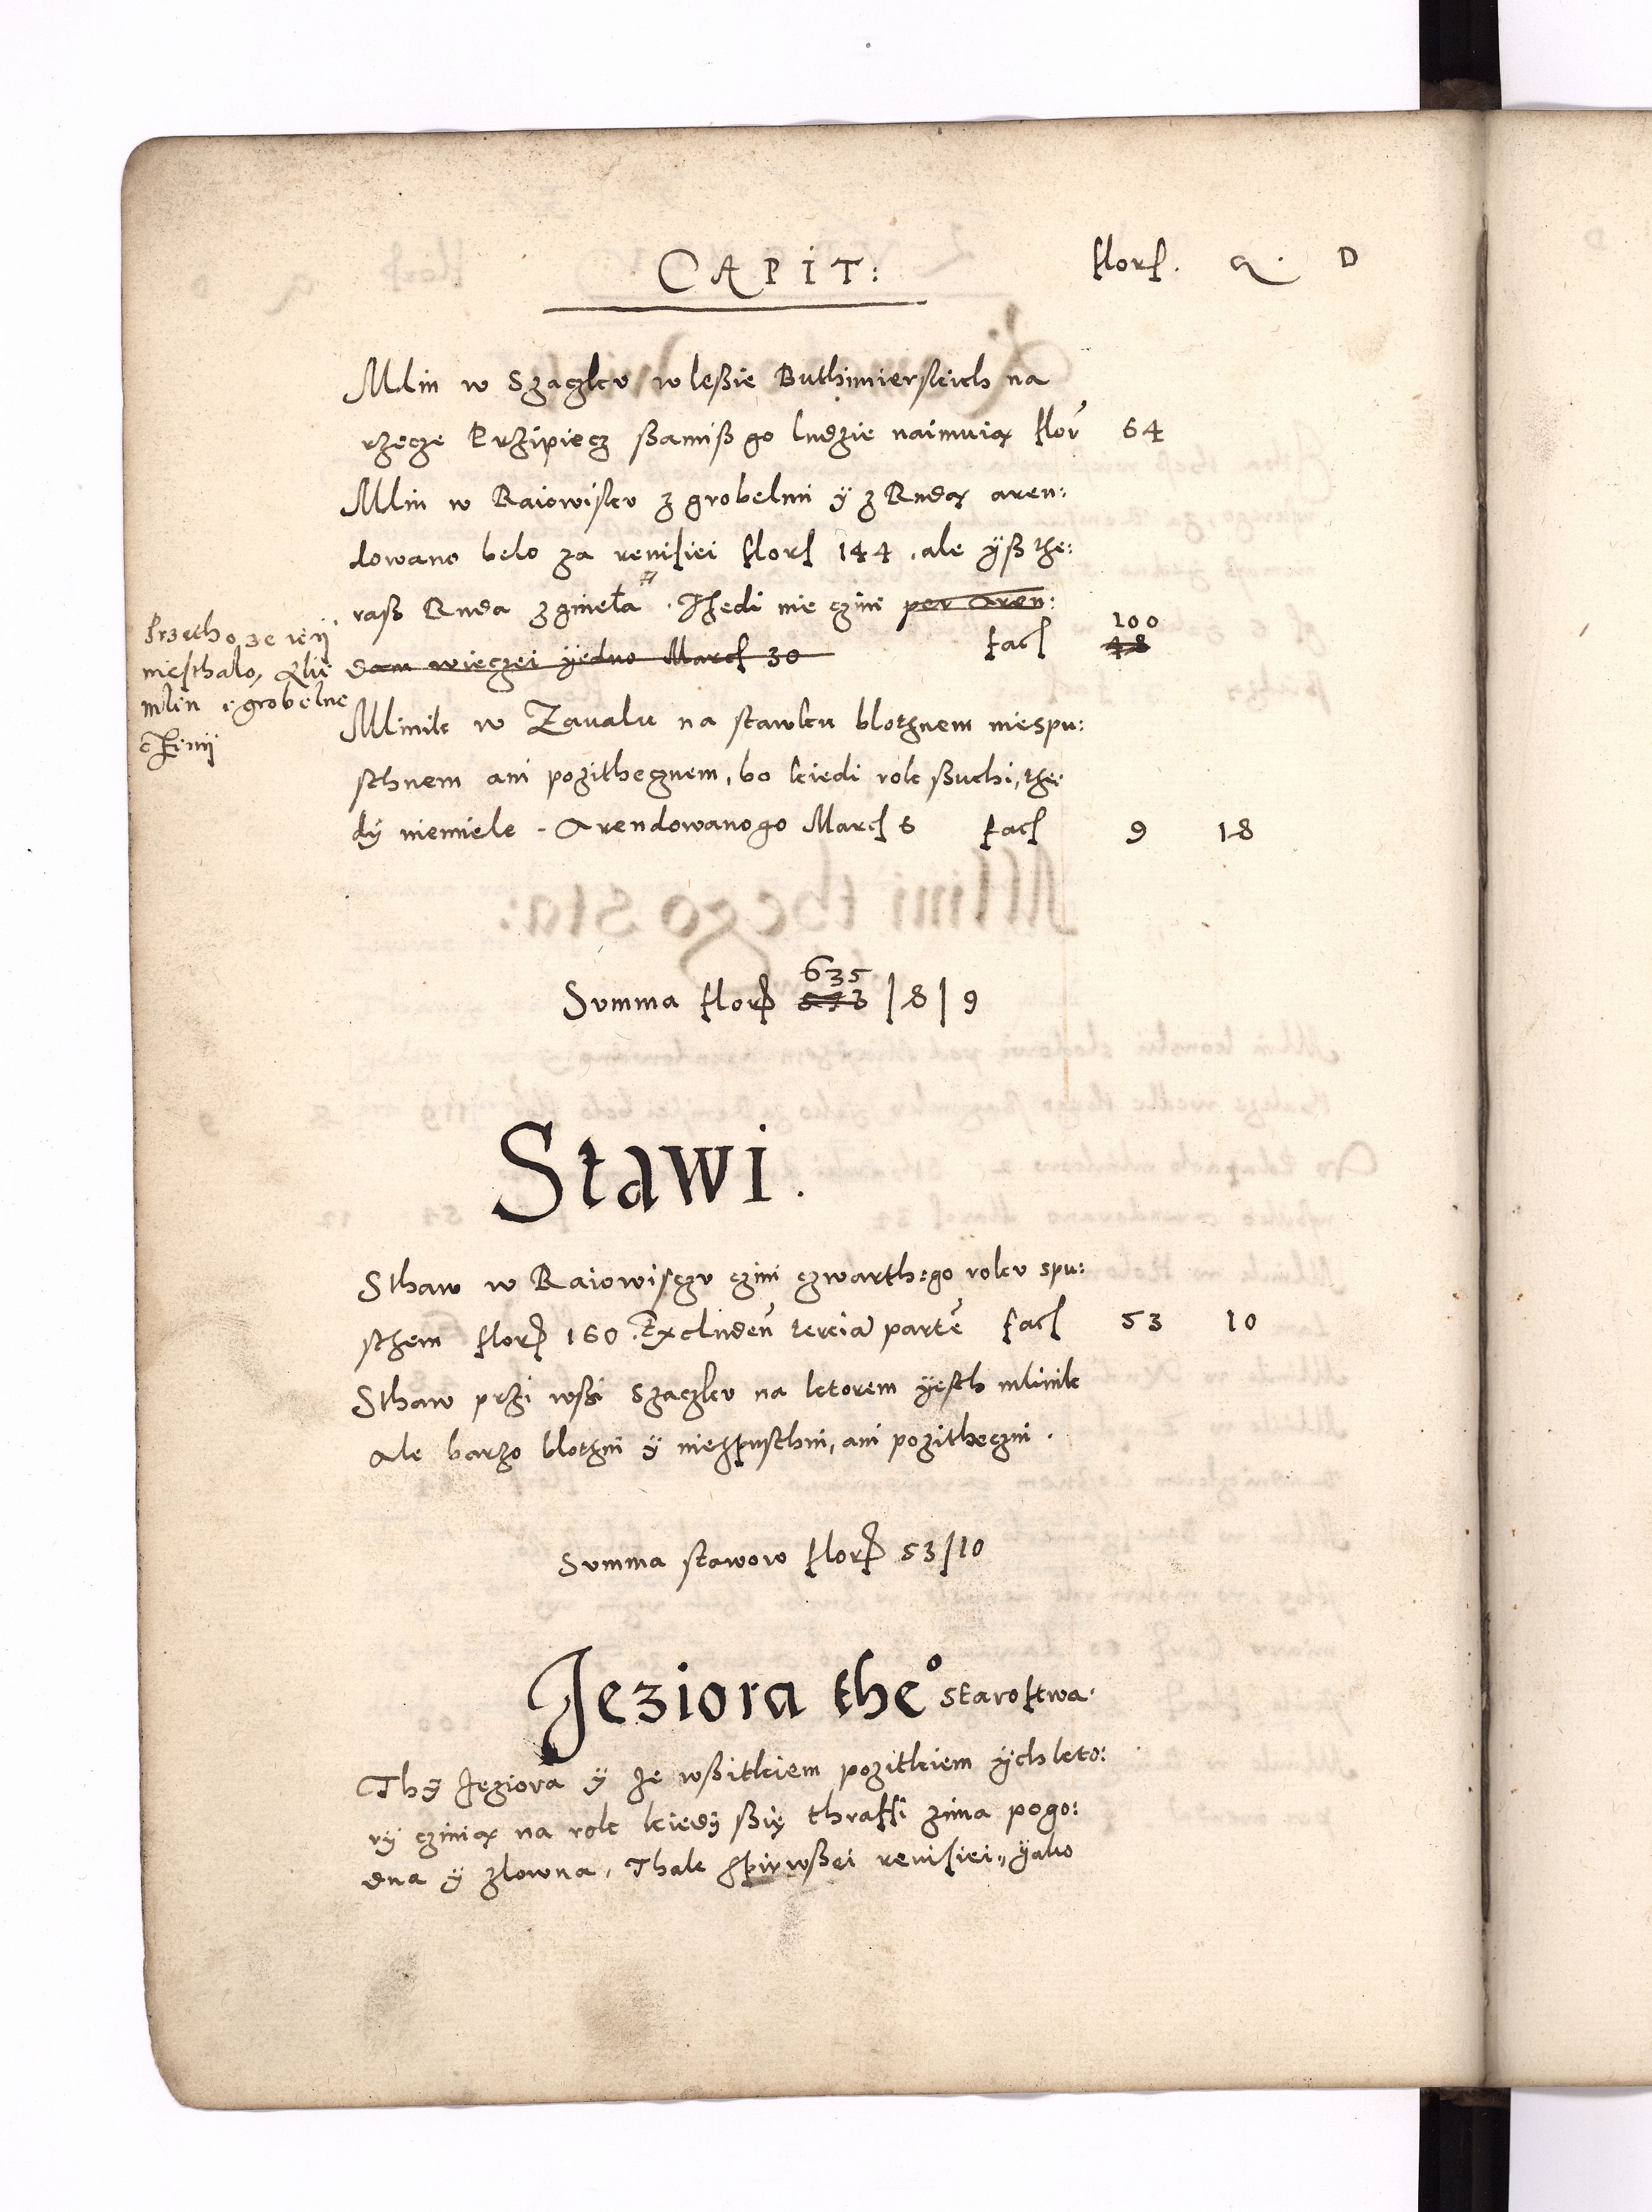 CAPIT: flor. G. D
Mlin w Szaczku w leßie Buthimierskich na
rzecze Przipiecz ßamiß go ludzie naimuią flor 64
Mlin w Raiowisku z grobelmi ÿ z Rudą aren:
dowano belo za reuisiei flor 144. ale ÿß the:
raß Ruda zgineła. Thedi nie czini per aren:
dam wieczei ÿedno March 30 fac 100 48
Przetho ze iéÿ
niesthało,
mlin i grobelne
Mlinik w Zaualu na stawku blothnem niespu:
sthnem ani pozithecznem, bo kiedi rok ßuchi, the:
dÿ niemiele. Arendowano go March 6 fac 9 18
Summa flor 635 / 8 / 9
Stawi.
Sthaw w Raiowisczu czini czwarthego roku spu:
sthem flor 160. Excluden terciã partẽ fac 53 10
Sthaw przi wßi Szaczku na ktorem ÿesth mlinik
ale barzo blothni ÿ niezpusthni, ani pozitheczni.
Summa stawow flor 53/10
Jeziora the° starostwa.
Thÿ Jeziora ÿ ze wßitkiem pozitkiem ÿch kto:
rÿ czinią na rok kiedÿ ßię thraffi zima pogo:
dna ÿ zlowna, Thak pirwßei reuisiei, ÿako